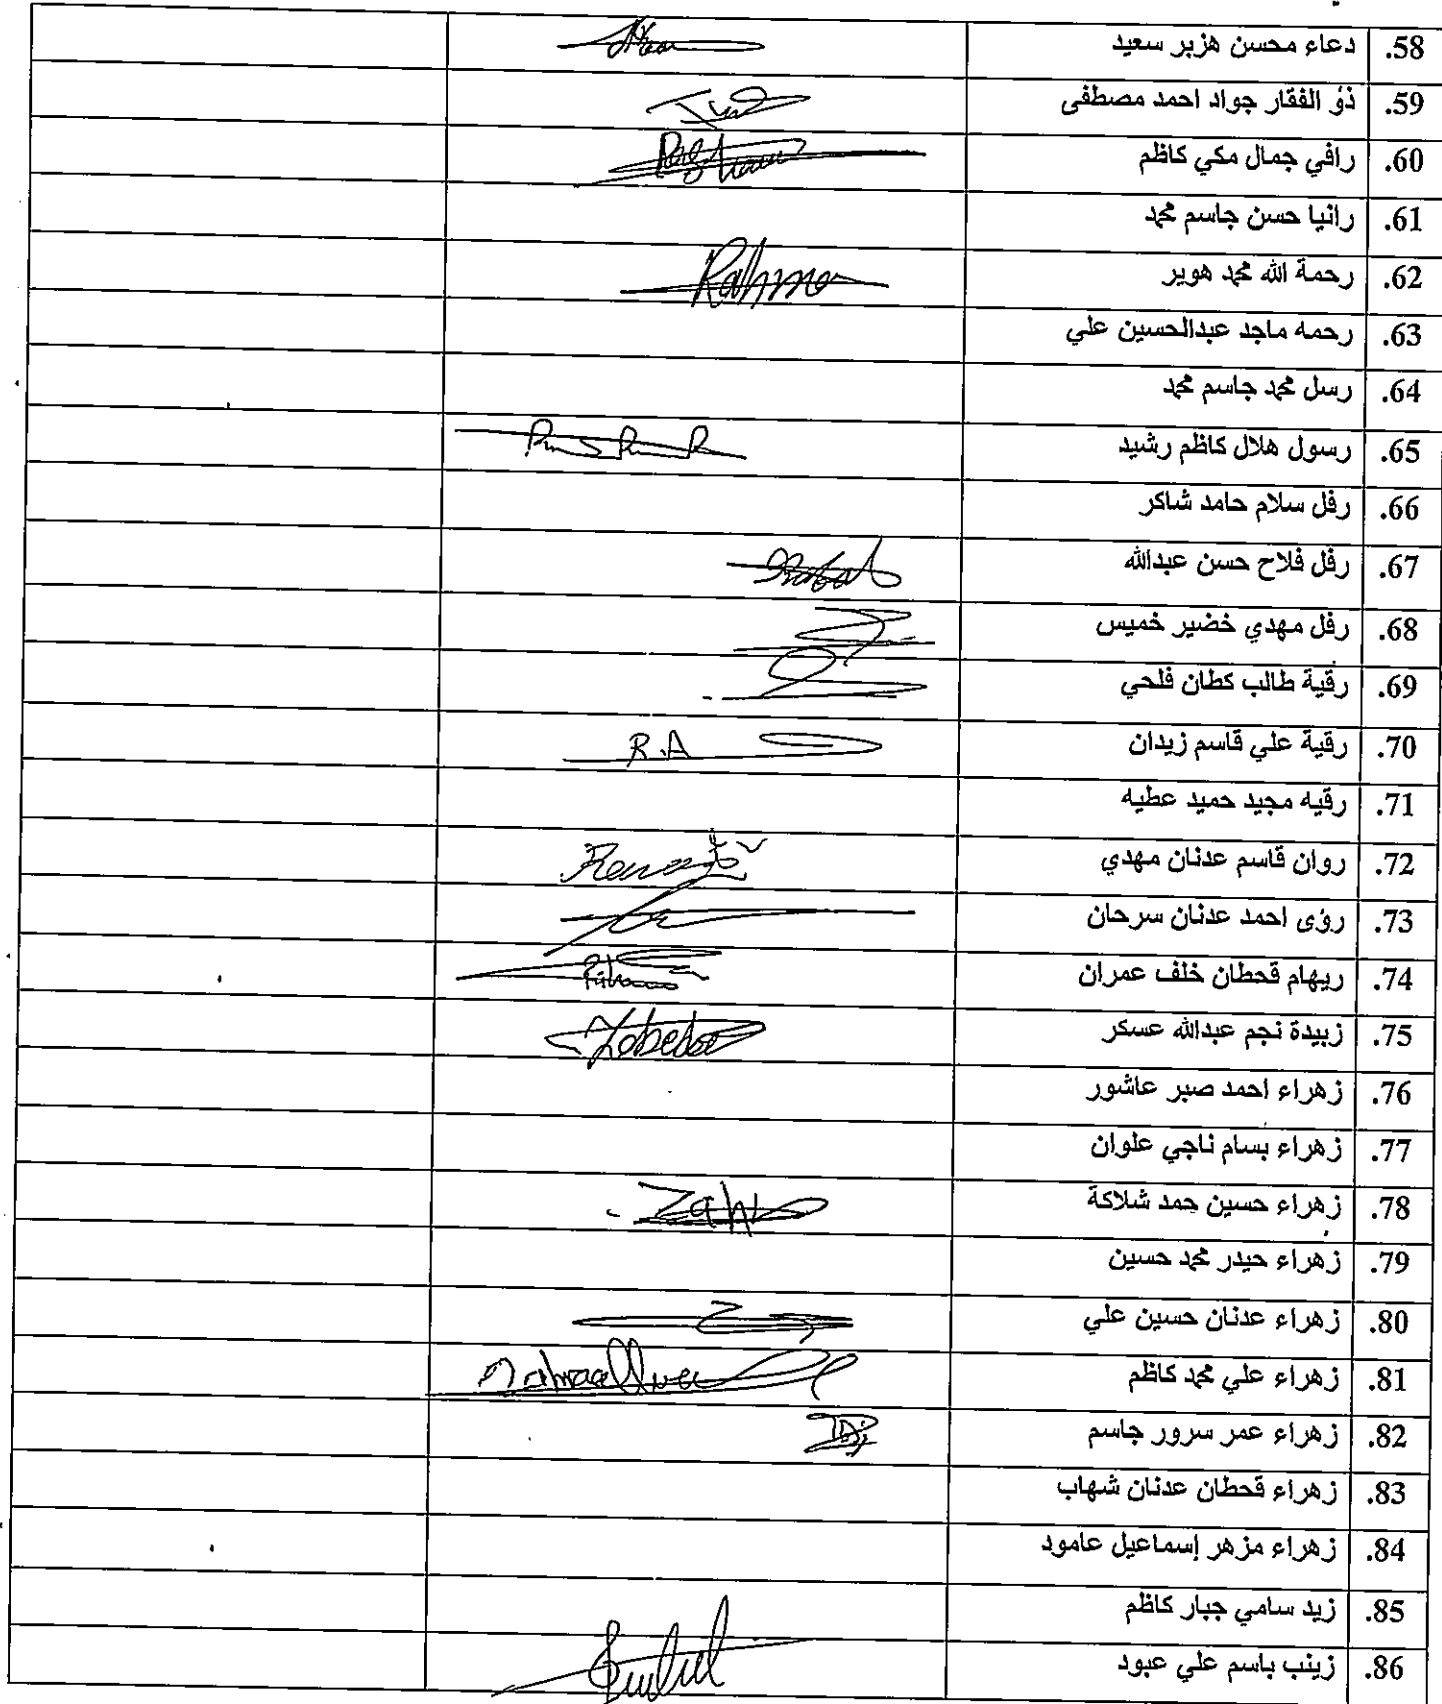 58. دعاء محسن هزبر سعيد
59. ذؤ الفقار جواد احمد مصطفى
60. رافي جمال مكي كاظم
61. رانيا حسن جاسم محمد
62. رحمة الله محمد هوير Rahma
63. رحمه ماجد عبدالحسين علي
64. رسل محمد جاسم محمد
65. رسول هلال كاظم رشيد
66. رفل سلام حامد شاكر
67. رفل فلاح حسن عبدالله
68. رفل مهدي خضير خميس
69. رقية طالب كطان فلحي
70. رقية علي قاسم زيدان R.A
71. رقيه مجيد حميد عطيه
72. روان قاسم عدنان مهدي
73. رؤى احمد عدنان سرحان
74. ريهام قحطان خلف عمران
75. زبيدة نجم عبدالله عسكر
76. زهراء احمد صبر عاشور
77. زهراء بسام ناجي علوان
78. زهراء حسين حمد شلاكة
79. زهراء حيدر محمد حسين
80. زهراء عدنان حسين علي
81. زهراء علي محمد كاظم
82. زهراء عمر سرور جاسم
83. زهراء قحطان عدنان شهاب
84. زهراء مزهر إسماعيل عامود
85. زيد سامي جبار كاظم
86. زينب باسم علي عبود